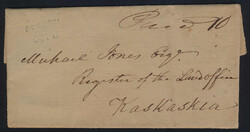 Paid 10
Michael Jones Esqr.
Register of the Land Office
Kaskaskia